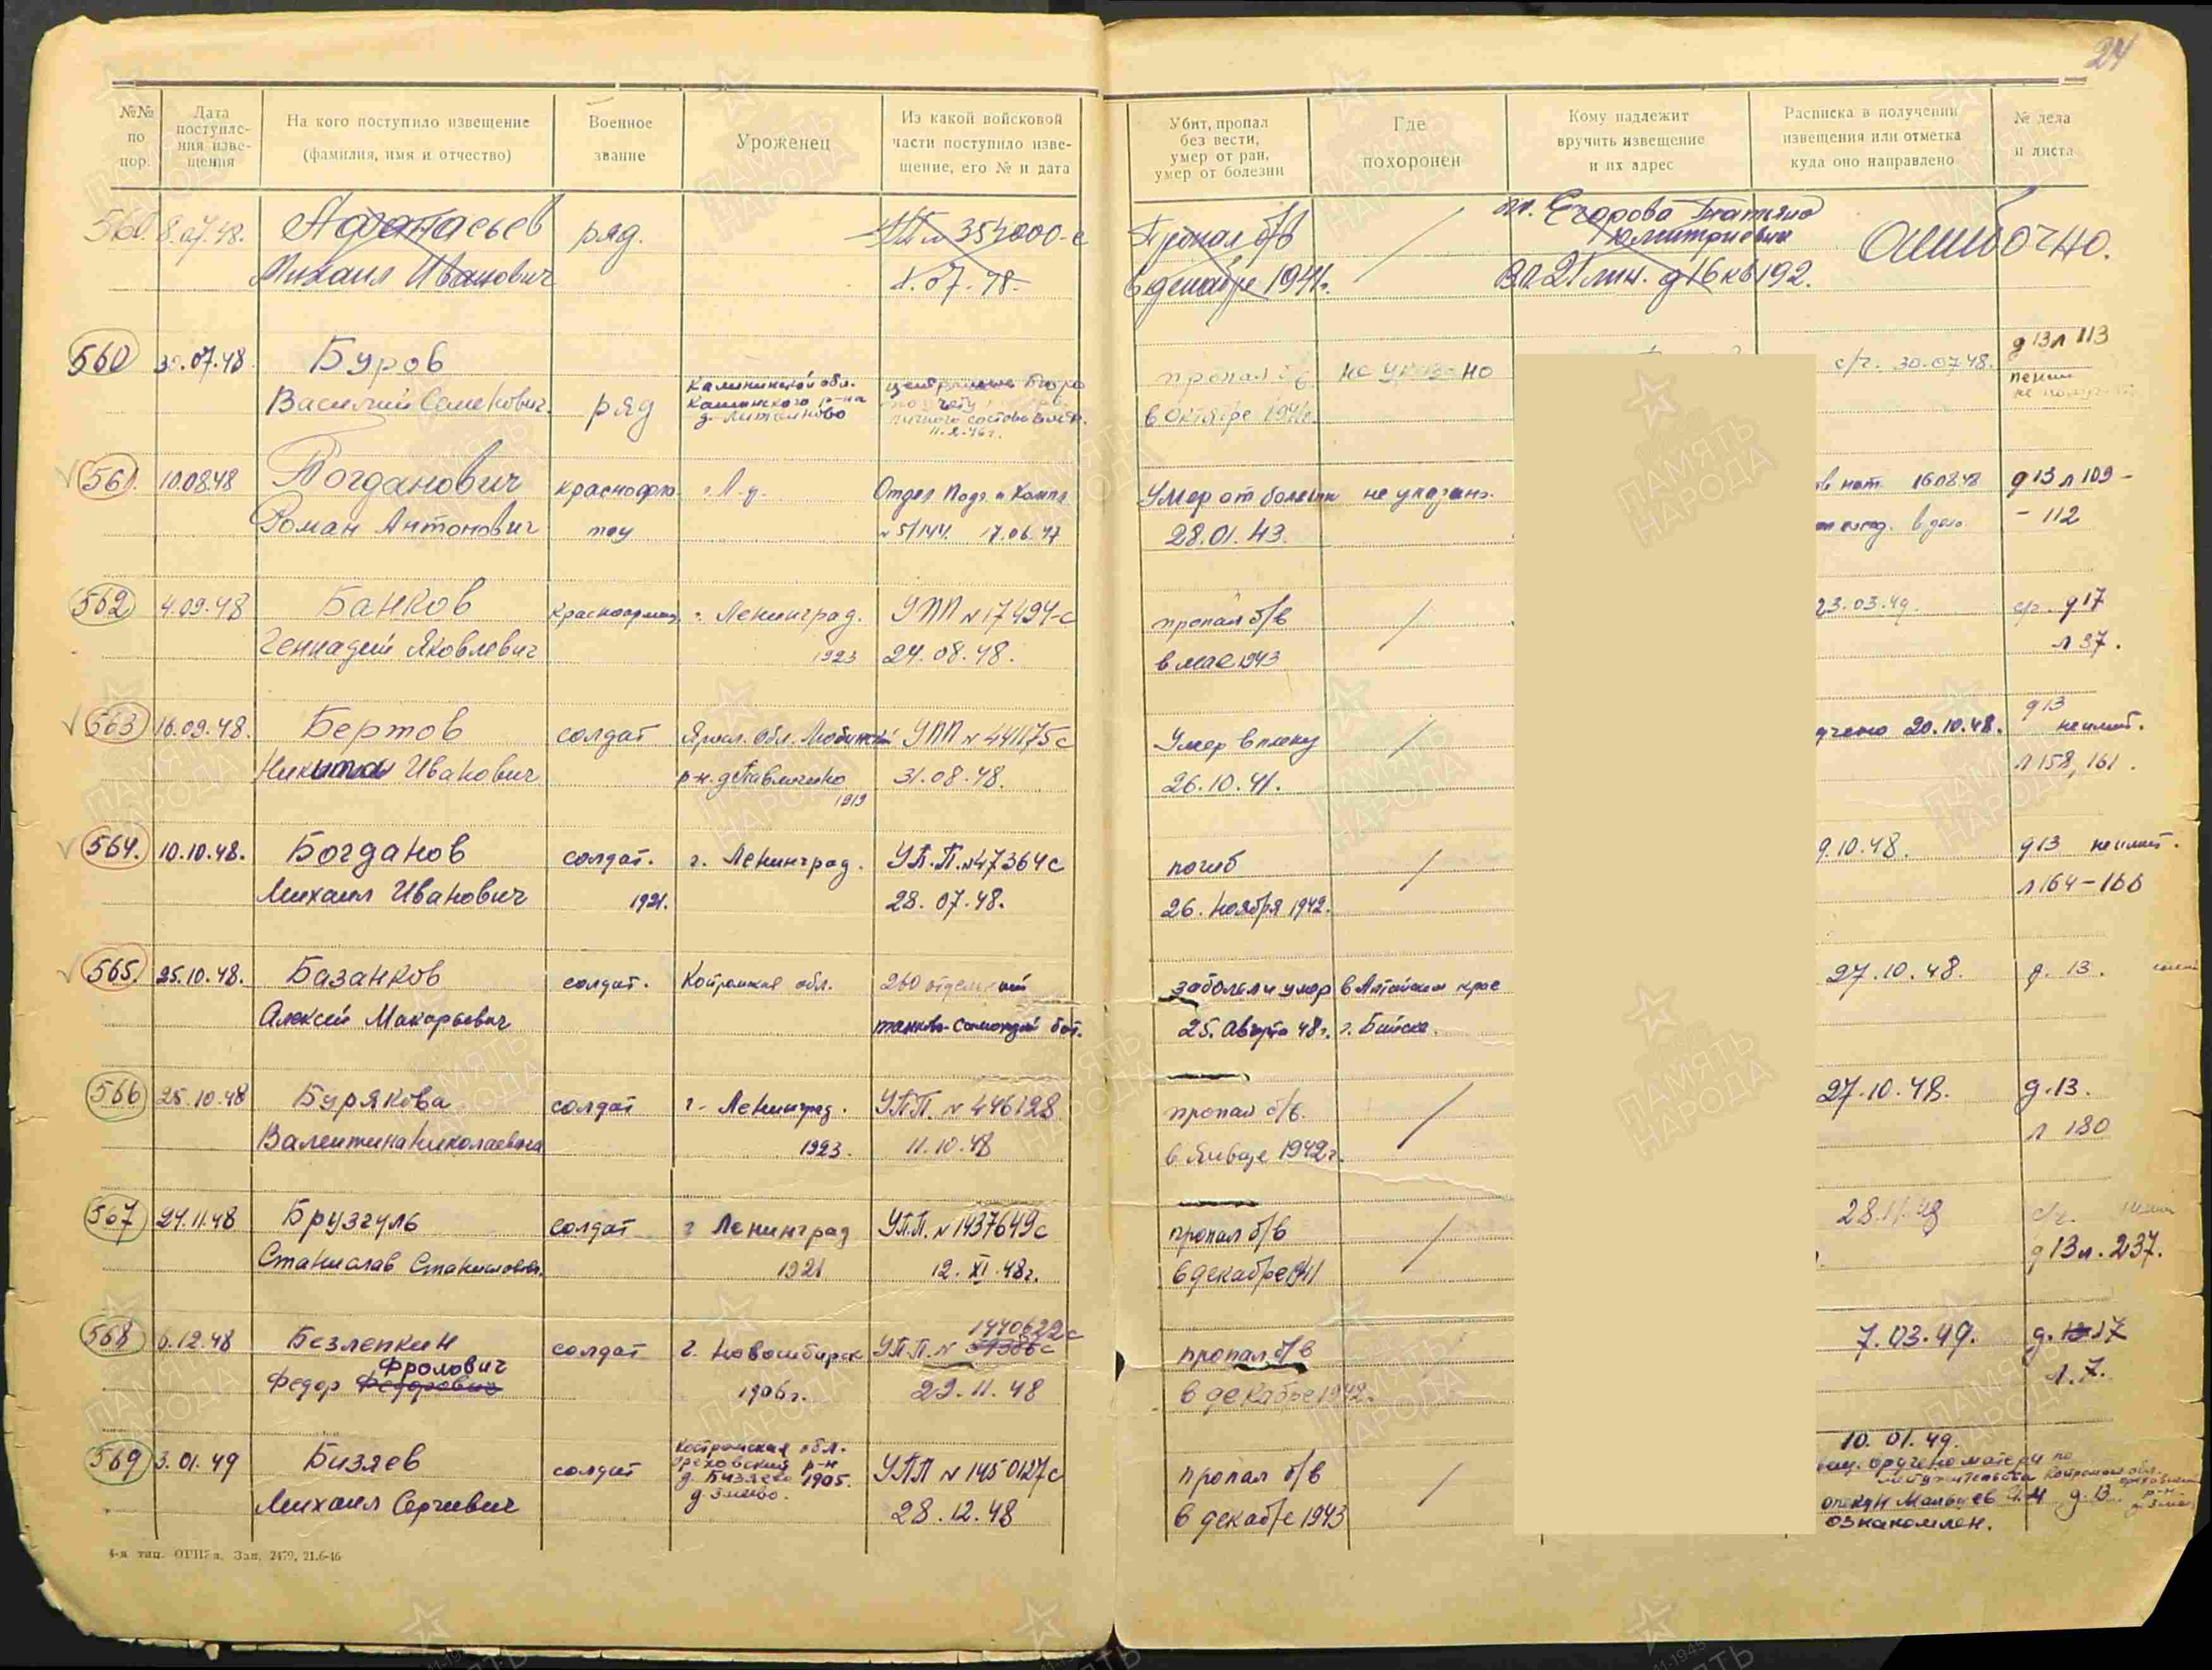 24
№№ по пор.
Дата поступле-ния изве-щения
На кого поступило извещение (фамилия, имя и отчество)
Военное звание
Уроженец
Из какой войсковой части поступило изве-щение, его № и дата
Убит, пропал без вести, умер от ран, умер от болезни
Где похоронен
Кому надлежит вручить извещение и их адрес
Расписка в получении извещения или отметка куда оно направлено
№ дела и листа
560. 8.07.48. Афанасьев ряд. 354000-с Пропал б/в / Егорова Татьяна Ошибочно.
Михаил Иванович 1.07.48. в декабре 1941г. Дмитриевна
В.О. 21 лин. д 16 кв 192.
560 30.07.48 Буров Калининской обл. пропал б/в не указано с/г. 30.07.48. д 13 л 113
Василий Семенович. ряд р-на в октябре 1941г. пенсии
личного состава 11.2.46г.
561 10.08.48 Богданович краснофло г. Л-д. Отдел Умер от болезни не указано. 16.08.48 д 13 л 109 -
Роман Антонович тец № 5/144 17.06.47 28.01.43. в дело - 112
562 4.09.48 Банков красноармеец г. Ленинград. УПП №17494-с пропал б/в / 23.03.49. с/г. д 17
Геннадий Яковлевич 1923 24.08.48. в мае 1943 л 37.
563 16.09.48. Бертов солдат Яросл. обл. Любимский УПП № 441175с Умер в плену / 20.10.48. д 13
Никита Иванович р-н. 1919 31.08.48. 26.10.41. л 158, 161.
564. 10.10.48. Богданов солдат. г. Ленинград. УП.П. №47364с погиб / 9.10.48. д 13
Михаил Иванович 1921. 28.07.48. 26. ноября 1942. л 164-166
565. 25.10.48. Базанков солдат. Костромская обл. 260 отдельный заболел и умер в Алтайском крае 27.10.48. д. 13.
Алексей Макарьевич бат. 25. Августа 48г. г. Бийске.
566 25.10.48 Бурякова солдат г. Ленинград. УПП. № 446128 пропал б/в. / 27.10.48. д.13.
Валентина Николаевна 1923. 11.10.48 в январе 1942г. л 180
567 24.11.48 Брузгуль солдат г Ленинград УП.П. № 1437649с пропал б/в / 28.11.48 с/г.
Станислав Станиславов. 1921 12.XI.48г. в декабре 1941 д 13 л. 237.
568 6.12.48 Безлепкин солдат г. Новосибирск УП.П. № 39386с 1440622с пропал б/в 7.03.49. д. 13 17
Федор Федорович Фролович 1906г. 29.11.48 в декабре 1942. л. 7.
569 3.01.49 Бизяев солдат Костромская обл. Ореховский р-н 1905. УПП № 1450127с пропал б/в / 10.01.49.
Михаил Сергеевич 28.12.48 в декабре 1943 вручено матери по
опекун Мальцев д.13
ознакомлен.
4-я тип. ОГИЗа. Зак. 2479, 21.6-46
ПАМЯТЬ НАРОДА